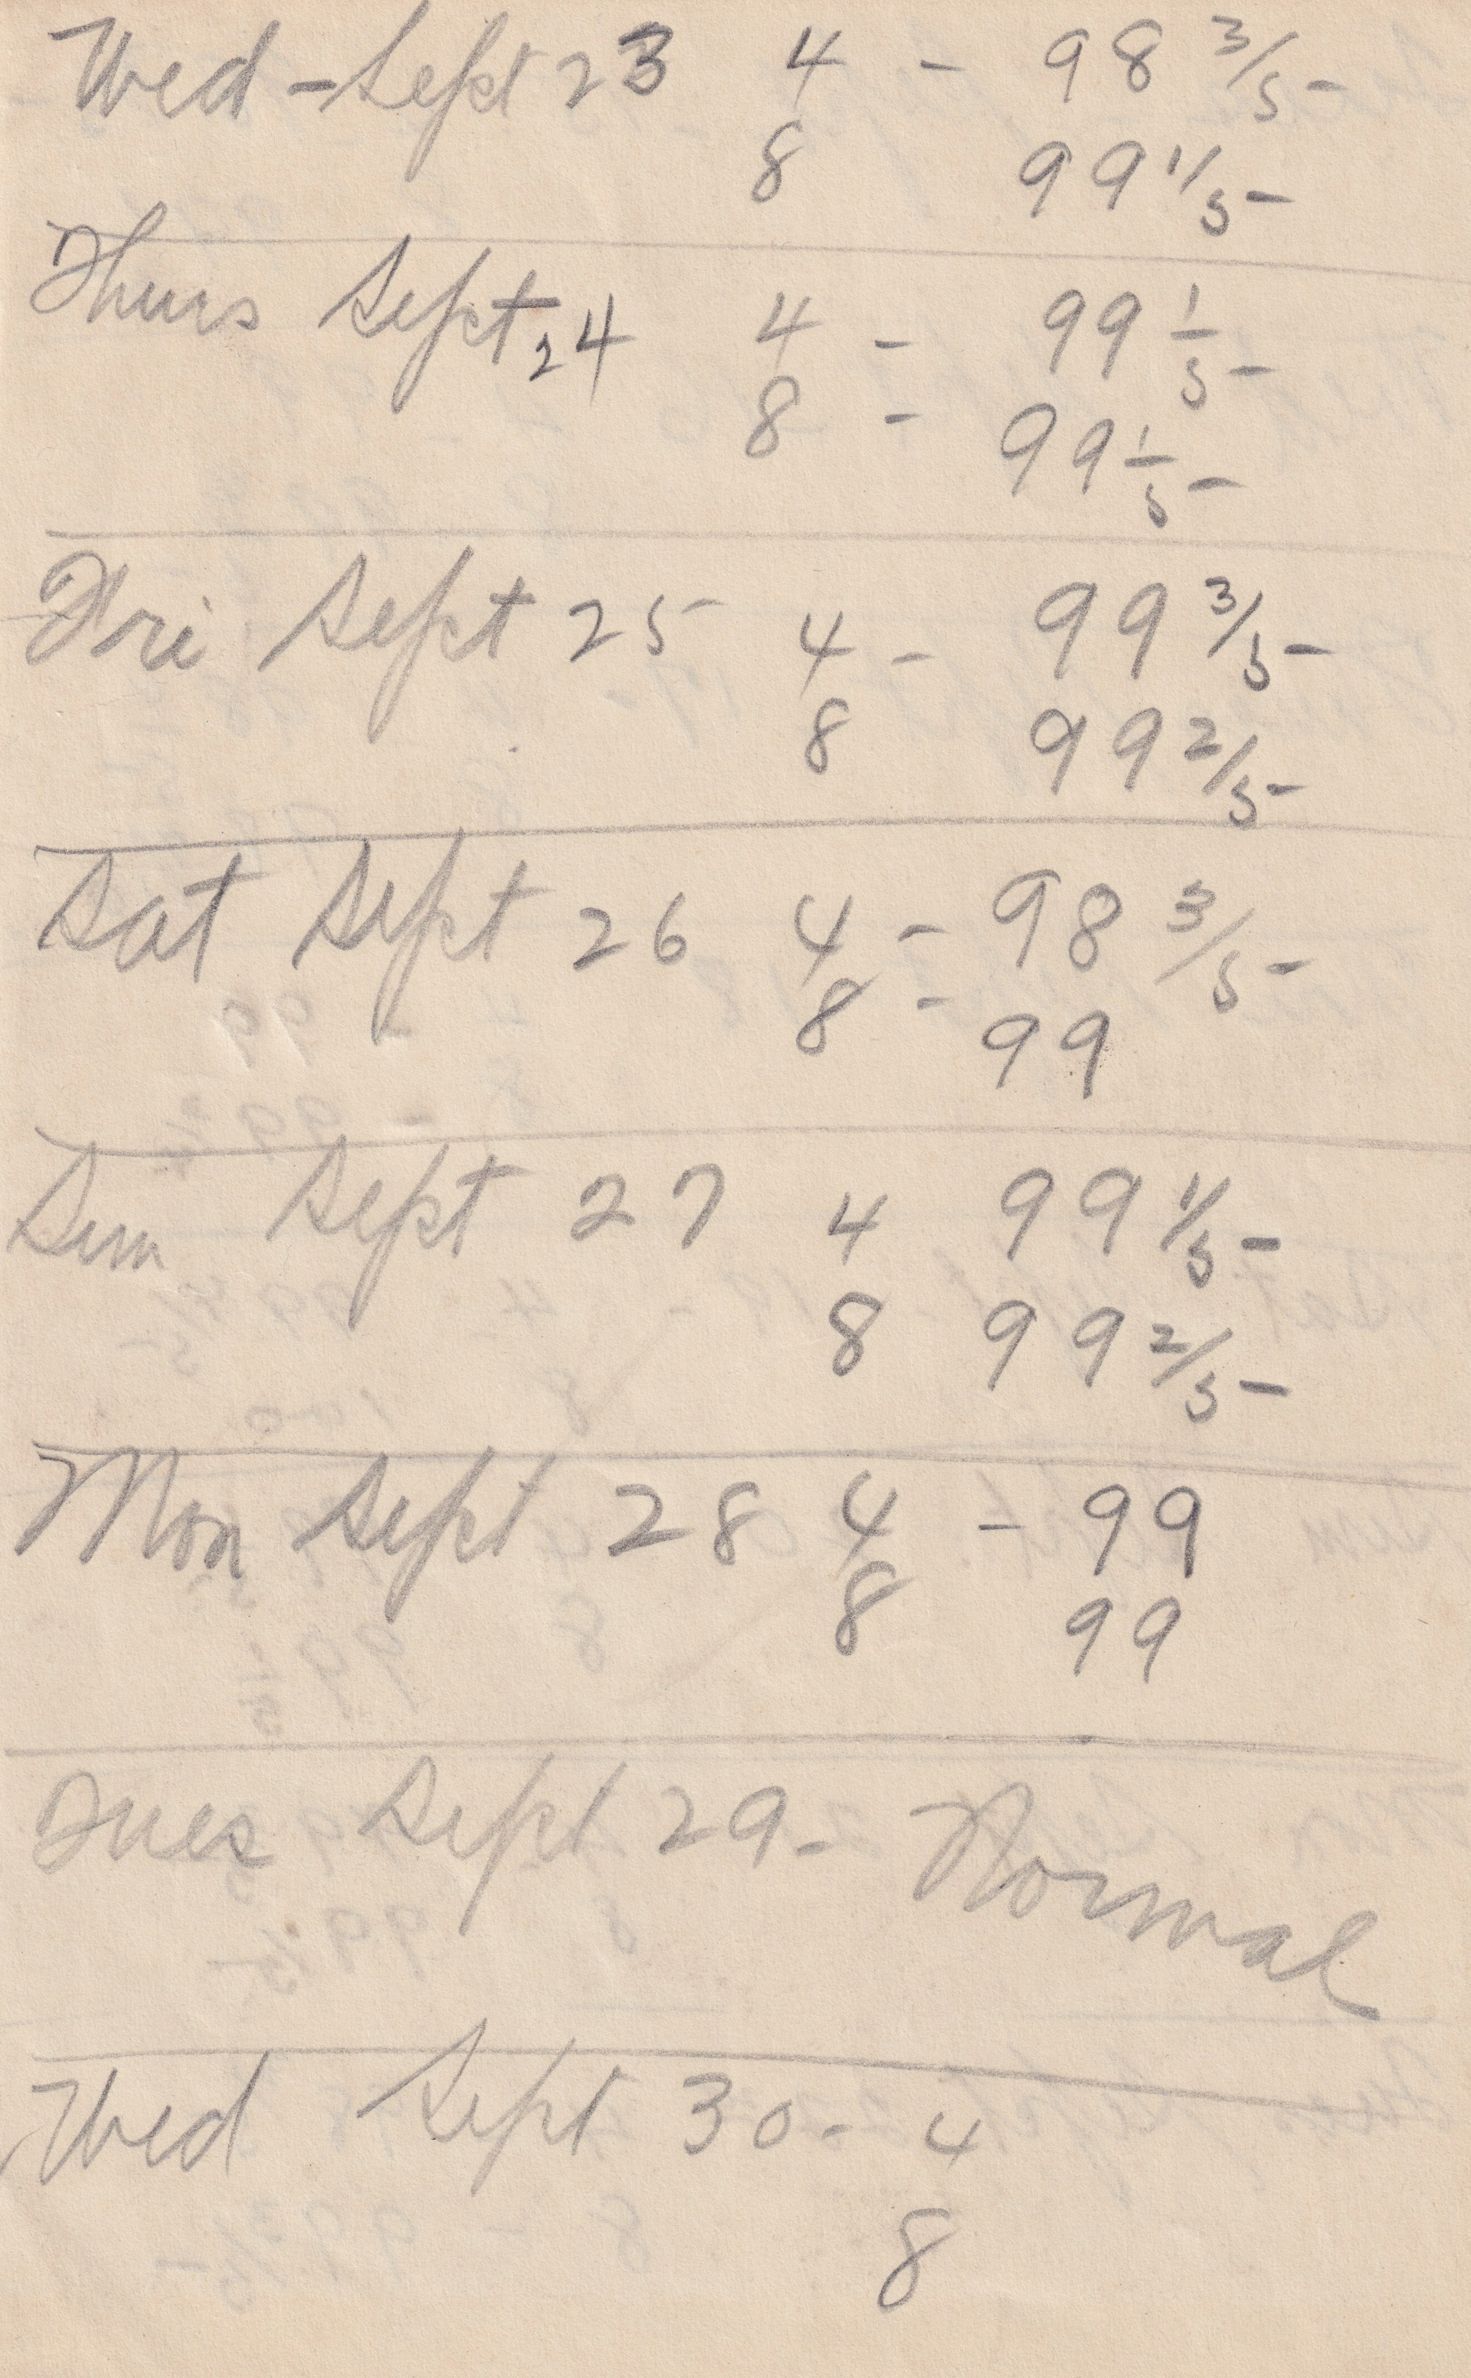 Wed - Sept 23 4 - 98 3/5
8 99 1/5
Thurs Sept 24 4 - 99 1/5
8 - 99 1/5
Fri Sept 25 4 - 99 3/5
8 99 2/5
Sat Sept 26 4 - 98 3/5
8 - 99
Sun Sept 27 4 99 1/5
8 99 2/5
Mon Sept 28 4 - 99
8 99
Tues Sept 29 - Normal
Wed Sept 30 - 4
8